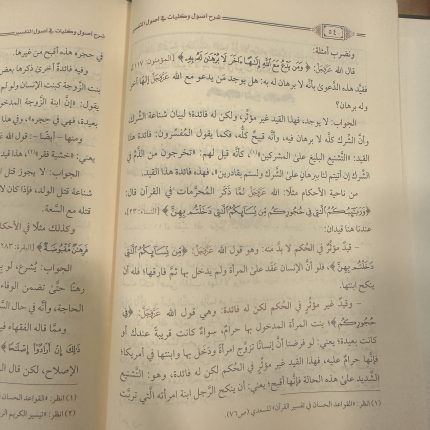 ٥٤
شرح أصول وكليات في أصول التفسير
ونضرب أمثلة:
قال الله عَزَّوَجَلَّ: ﴿وَمَن يَدْعُ مَعَ ٱللَّهِ إِلَٰهًا ءَاخَرَ لَا بُرْهَٰنَ لَهُۥ بِهِۦ﴾ [المؤمنون: ١١٧]،
فقيَّد هذه الدَّعوىٰ بأنَّه لا برهان له به: هل يوجد مَن يدعو مع الله عَزَّوَجَلَّ إلهًا آخر
وله برهان؟
الجواب: لا يوجد، فهذا القيد غير مؤثِّر، ولكن له فائدة؛ لبيان شناعة الشِّرك
وأنَّ الشِّرك كلَّه لا برهان فيه، وأنَّه قبيحٌ كلُّه، فكما يقول المُفسِّرون: فائدة هذا
القيد: «التَّشنيع البليغ علىٰ المشركين»(١)، كأنَّه قيل لهم: «تخرجون من الذَّمِّ في
الشِّرك إن أتيتم لنا ببرهانٍ علىٰ الشِّرك ولستم بقادرين»، فهذه فائدة هذا القيد.
من ناحية الأحكام مثلًا: الله عَزَّوَجَلَّ لمَّا ذَكَر المُحرَّمات في القرآن قال:
﴿وَرَبَٰٓئِبُكُمُ ٱلَّٰتِى فِى حُجُورِكُم مِّن نِّسَآئِكُمُ ٱلَّٰتِى دَخَلْتُم بِهِنَّ﴾ [النساء: ٢٣]،
عندنا هنا قيدان:
- قيدٌ مؤثِّرٌ في الحُكم لا بدَّ منه: وهو قول الله عَزَّوَجَلَّ: ﴿مِّن نِّسَآئِكُمُ ٱلَّٰتِى
دَخَلْتُم بِهِنَّ﴾، فلو أنَّ الإنسان عَقَد علىٰ امرأة ولم يدخل بها ثمَّ فارقها؛ فله أن
ينكح ابنتها.
- وقيد غير مؤثِّرٍ في الحُكم لكن له فائدة: وهي قول الله عَزَّوَجَلَّ: ﴿فِى
حُجُورِكُم﴾؛ بنت المرأة المدخول بها حرامٌ، سواءٌ كانت قريبةً عندك أو
كانت بعيدة؛ يعني: لو فرضنا أنَّ إنسانًا تزوَّج امرأة ودَخَل بها وابنتها في أمريكا؛
فإنَّها حرامٌ عليه، فهذا القيد غير مؤثِّرٍ في الحُكم لكنه له فائدة، وهو: التَّشنيع
الشَّديد علىٰ هذه الحالة فإنَّها أقبح؛ يعني: أن ينكح الرَّجل ابنة امرأته الَّتي تربَّت
(١) انظر: «القواعد الحسان في تفسير القرآن» للسعدي (ص٧٦).
شرح أصول وكليات في أصول التفسير
في حجره هذه أقبح من غيرها.
وفيه فائدةٌ أخرىٰ ذكرها بعض
بنت الزَّوجة كبنت الإنسان ولو لم
يقول: «إنَّ ابنة الزَّوجة المدخول
بعيدة، فهي في حجره»، وفي هذا
ومنها - أيضًا -: قول الله
يعني: «خشية فقر»(٢)، هذا قيد
الجواب: لا يجوز قتل
شناعة قتل الولد، فإذا كان لا
قتله مع السَّعة.
وكذلك مثلًا في الأحكام
فَرِهَٰنٌ مَّقْبُوضَةٌ﴾ [البقرة: ٢٨٣]
الجواب: يُشرع، لو
رهنًا حتَّىٰ تضمن الوفاء
الحاجة، وأنَّه في حال
وممَّا قاله الفقهاء
ذَٰلِكَ إِنْ أَرَادُوٓا۟ إِصْلَٰحًا﴾
الإصلاح، لكن قال
(١) انظر: «القواعد الحسان
(٢) انظر: «تيسير الكريم